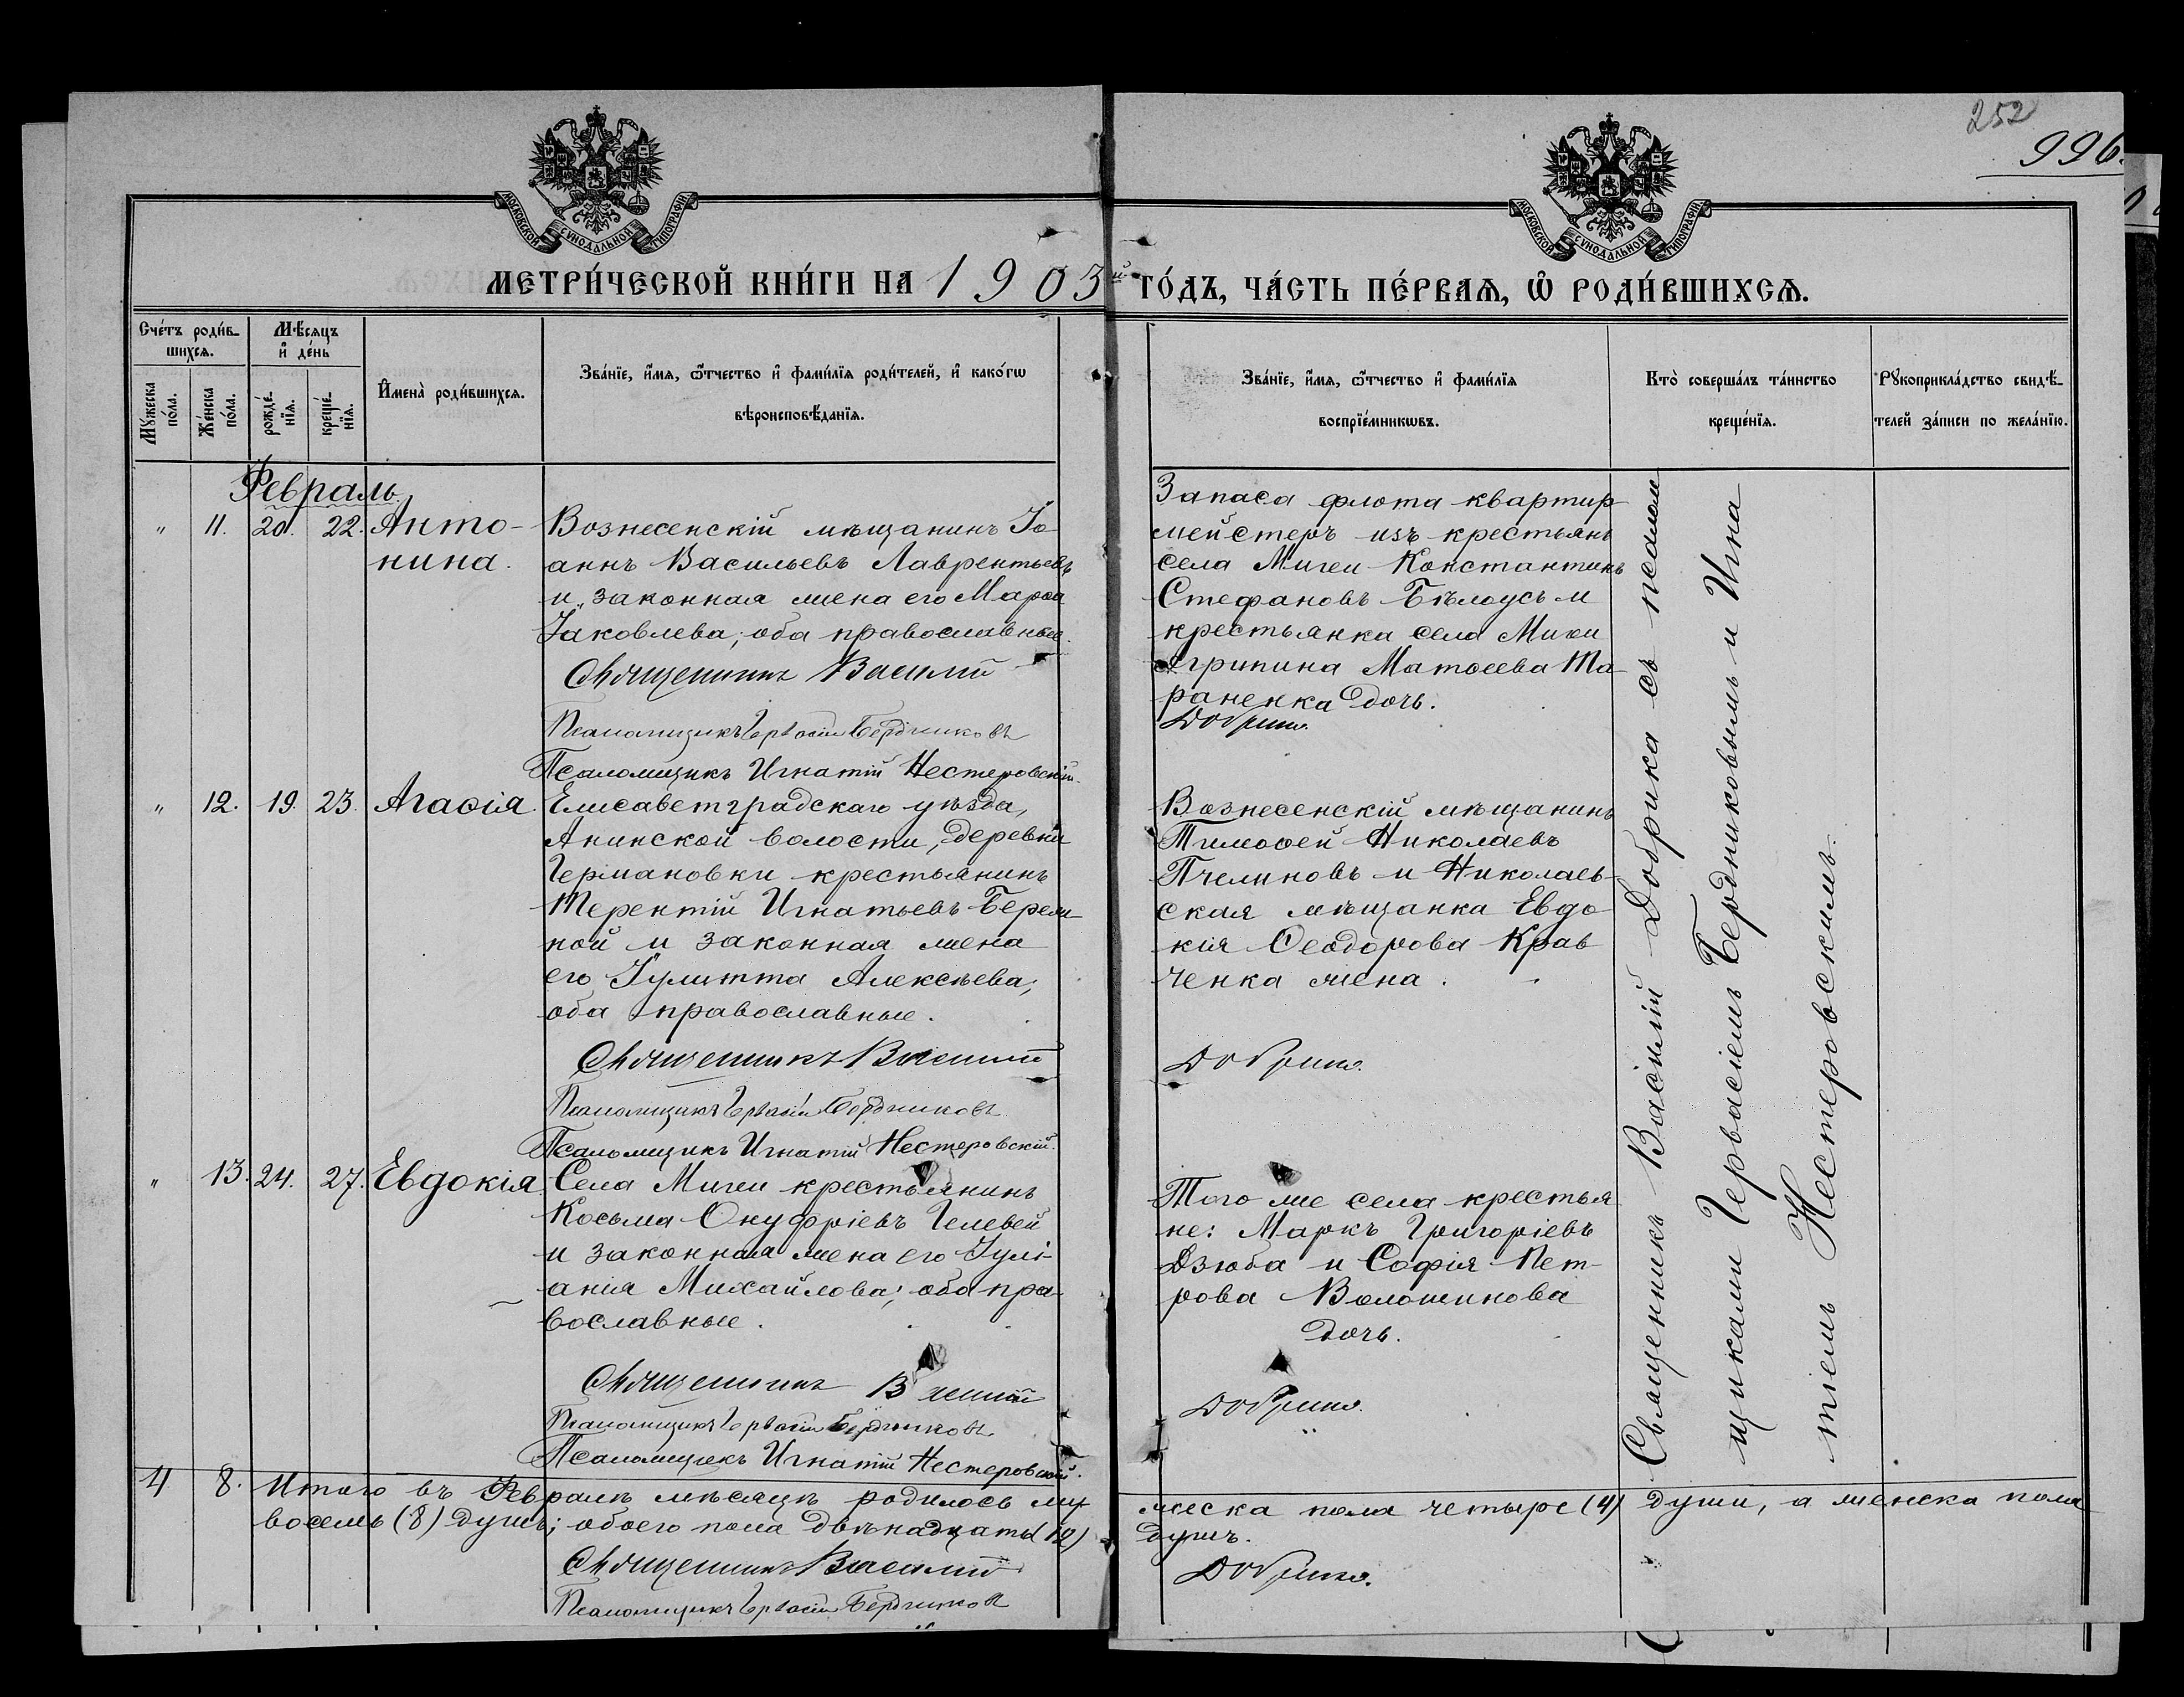 252
996.
МОСКОВСКОЙ СѴНОДАЛЬНОЙ ТИПОГРАФІИ
МОСКОВСКОЙ СѴНОДАЛЬНОЙ ТИПОГРАФІИ
МЕТРИ́ЧЕСКОЙ КНИ́ГИ НА 1903й ГО́ДЪ, ЧА́СТЬ ПЕ́РВАѦ, Ѡ҆ РОДИ́ВШИХСѦ.
Сче́тъ роди́в-
шихсѧ.
Мѣ́сяцъ
и҆ де́нь
Мꙋ́жеска по́ла.
Же́нска по́ла.
рожде́-
нїѧ.
креще́-
нїѧ.
И҆мена̀ роди́вшихсѧ.
Зва́нїе, и҆́мѧ, ѻ҆́тчество и҆ фами́лїѧ роди́телей, и҆ како́гѡ
вѣроисповѣ́данїѧ.
Зва́нїе, и҆́мѧ, ѻ҆́тчество и҆ фами́лїѧ
воспрїе́мникѡвъ.
Кто̀ соверша́лъ та́инство
креще́нїѧ.
Рꙋкоприкла́дство свидѣ́-
телей за́писи по жела́нїю.
Февраль.
" 11. 20. 22. Анто-
нина.
Вознесенскій мѣщанинъ Іо-
аннъ Васильевъ Лаврентьевъ
и законная жена его Марѳа
Іаковлева; оба православные.
Священникъ Василій
Псаломщикъ Гервасій Бердниковъ
Псаломщикъ Игнатій Нестеровскій.
Запаса флота квартир-
мейстеръ изъ крестьянъ
села Мигеи Константинъ
Стефановъ Бѣлоусъ и
крестьянка села Мигеи
Агрипина Матѳеева Та-
раненка дочь.
Добрика.
" 12. 19. 23. Агаѳія.
Елисаветградскаго уѣзда,
Анинской волости, деревни
Германовки крестьянинъ
Терентій Игнатьевъ Берез-
ной и законная жена
его Іулитта Алексѣева;
оба православные.
Священникъ Василій
Псаломщикъ Гервасій Бердниковъ
Псаломщикъ Игнатій Нестеровскій.
Вознесенскій мѣщанинъ
Тимоѳей Николаевъ
Пчелиновъ и Николаев-
ская мѣщанка Евдо-
кія Ѳеодорова Крав-
ченка жена.
Добрика.
" 13. 24. 27. Евдокія.
Села Мигеи крестьянинъ
Косьма Онуфріевъ Гелевей
и законная жена его Іулі-
анія Михайлова; оба пра-
вославные.
Священникъ Василій
Псаломщикъ Гервасій Бердниковъ
Псаломщикъ Игнатій Нестеровскій.
Того же села крестья-
не: Маркъ Григоріевъ
Дзюба и Софія Пет-
рова Волошинова
дочь.
Добрика.
Священникъ Василій Добрика съ псалом-
щиками Гервасіемъ Бердниковымъ и Игна-
тіемъ Нестеровскимъ.
4 8. Итого въ Февралѣ мѣсяцѣ родилось му-
жеска пола четыре (4) души, а женска пола
восемь (8) душъ; обоего пола двѣнадцать (12)
душъ.
Священникъ Василій
Добрика.
Псаломщикъ Гервасій Бердниковъ